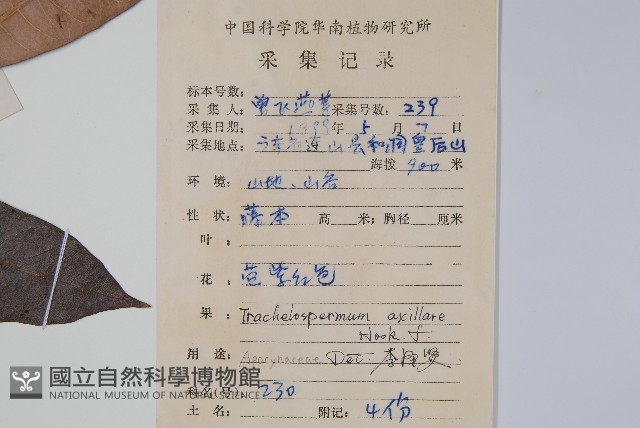 中国科学院华南植物研究所
采集记录
标本号数:
采集人: 曾飞燕等 采集号数: 239
采集日期: 1999年 5月 7日
采集地点: 广东省连山县和洞皇后山
海拨 900 米
环境: 山地、山谷
性状: 藤本 高 米; 胸径 厘米
叶:
花: 苞紫红色
果: Trachelospermum axillare
Hook. f.
用途: Apocynaceae Det:
科名(号): 230
土名: 附记: 4份
國立自然科學博物館
NATIONAL MUSEUM OF NATURAL SCIENCE